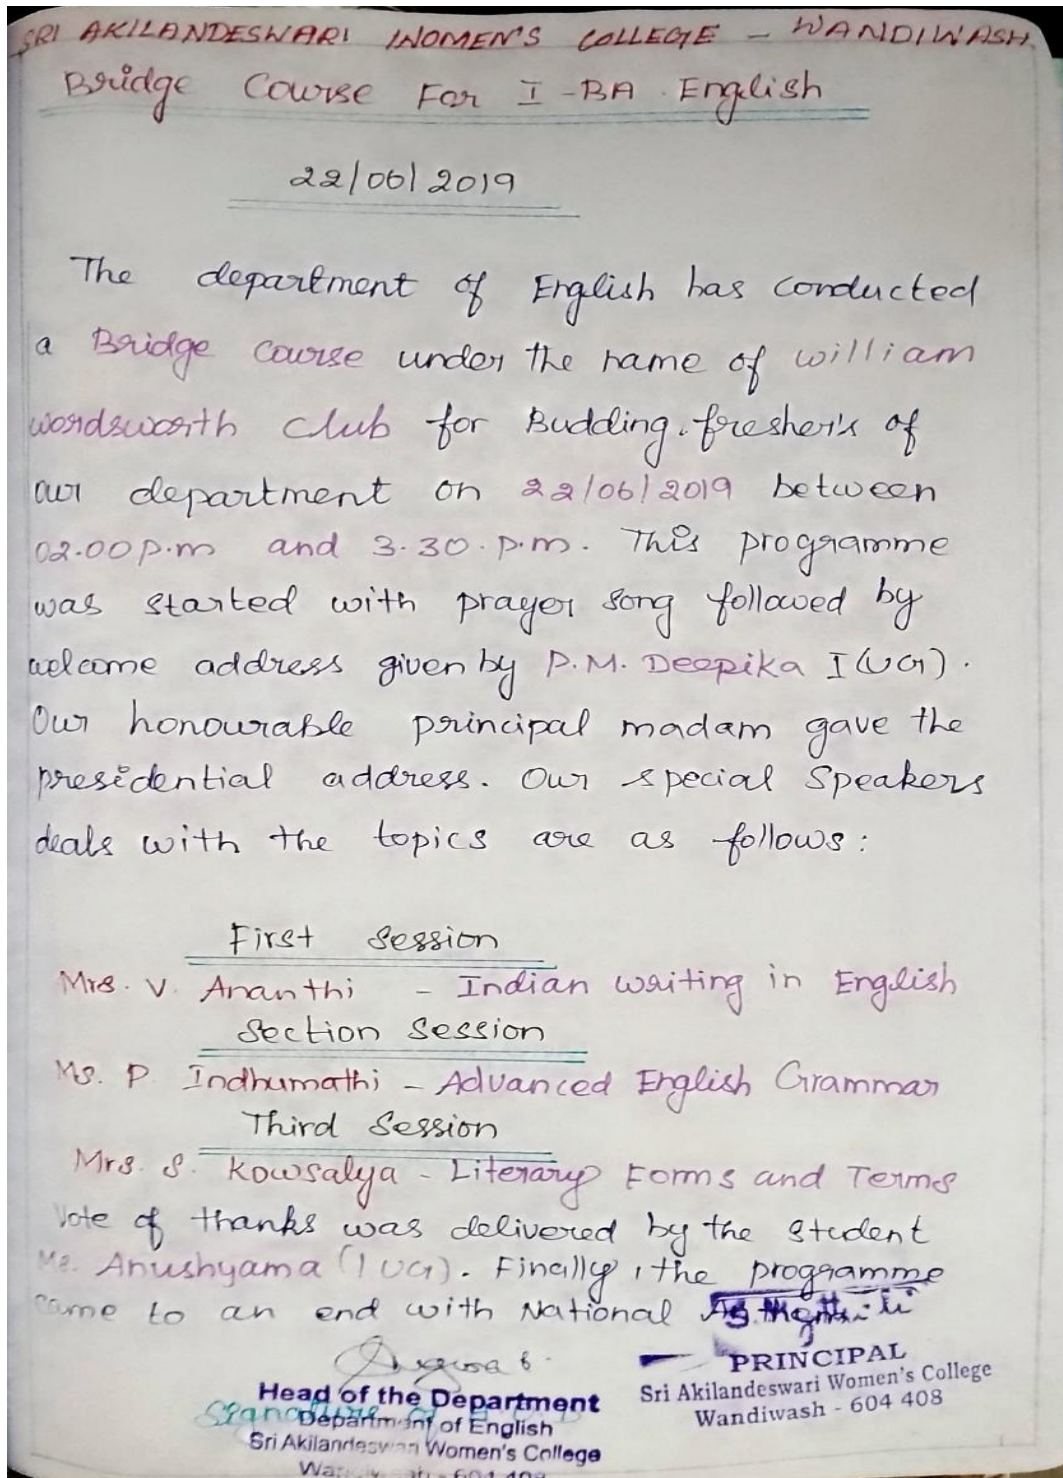 SRI AKILANDESWARI WOMEN'S COLLEGE - WANDIWASH
Bridge Course For I - BA English
22/06/2019
The department of English has conducted
a Bridge course under the name of william
wordsworth club for Budding fresher's of
our department on 22/06/2019 between
02.00 p.m and 3.30.p.m. This programme
was started with prayer song followed by
welcome address given by P.M. Deepika I (UG).
Our honourable principal madam gave the
presidential address. Our special Speakers
deals with the topics are as follows:
First Session
Mrs. V. Ananthi - Indian writing in English
Section Session
Ms. P. Indhumathi - Advanced English Grammar
Third Session
Mrs. S. Kowsalya - Literary Forms and Terms
Vote of thanks was delivered by the student
Ms. Anushyama (I UG). Finally, the programme
came to an end with National
PRINCIPAL
Sri Akilandeswari Women's College
Wandiwash - 604 408
Head of the Department
Signature of
Department of English
Sri Akilandeswari Women's College
Wandiwash - 604 408